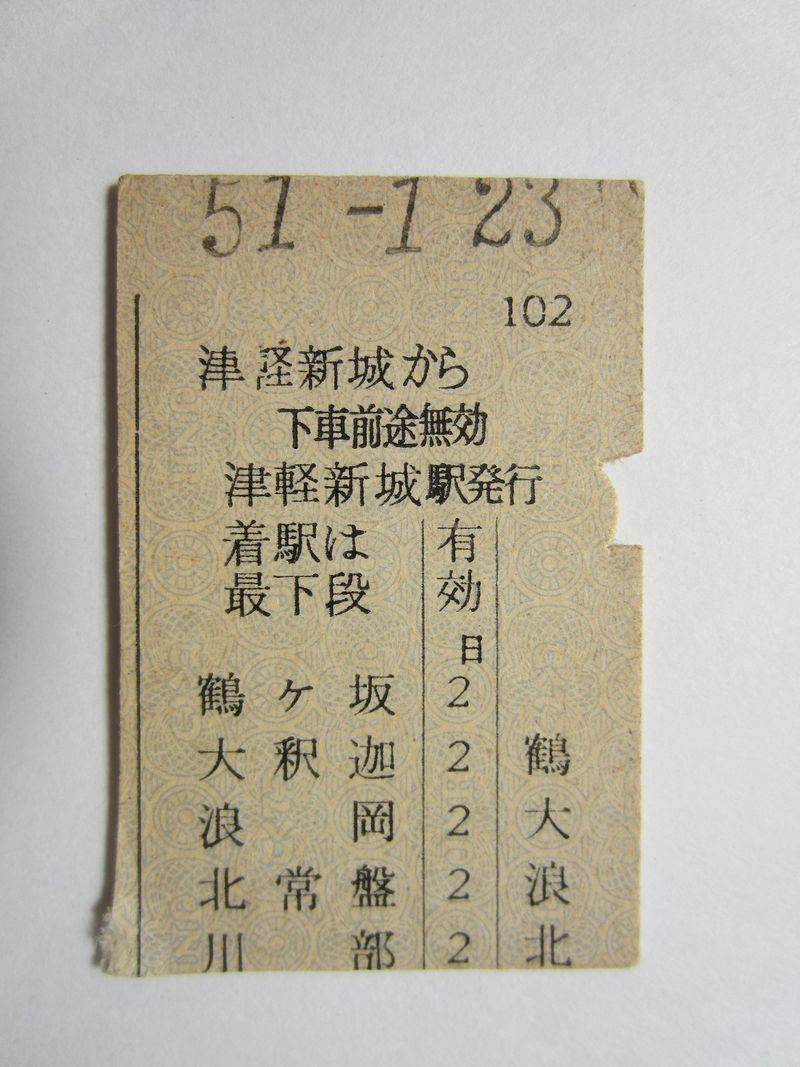 51 -1 23
102
津軽新城から
下車前途無効
津軽新城駅発行
着駅は 有
最下段 効
日
鶴ケ坂 2
大釈迦 2 鶴
浪岡 2 大
北常盤 2 浪
川部 2 北